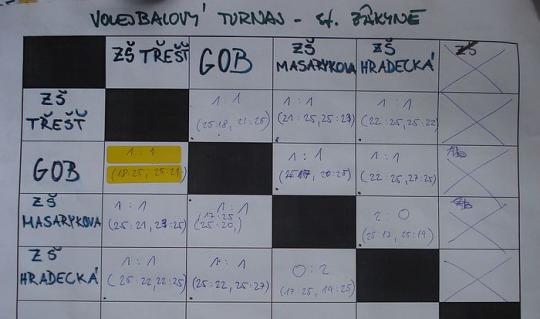 VOLEJBALOVÝ TURNAJ - st. ŽÁKYNĚ
ZŠ TŘEŠŤ GOB ZŠ MASARYKOVA ZŠ HRADECKÁ ZŠ
ZŠ TŘEŠŤ 1:1 1:1 1:1
(25:18, 21:25) (21:25, 25:23) (22:25, 25:22)
GOB 1:1 1:1 1:1
(18:25, 25:21) (25:17, 20:25) (22:25, 27:25)
ZŠ MASARYKOVA 1:1 1:1 2:0
(25:21, 23:25) (17:25 25:20,) (25:17, 25:19)
ZŠ HRADECKÁ 1:1 1:1 0:2
(25:22, 22:25) (25:22, 25:27) (17:25, 19:25)